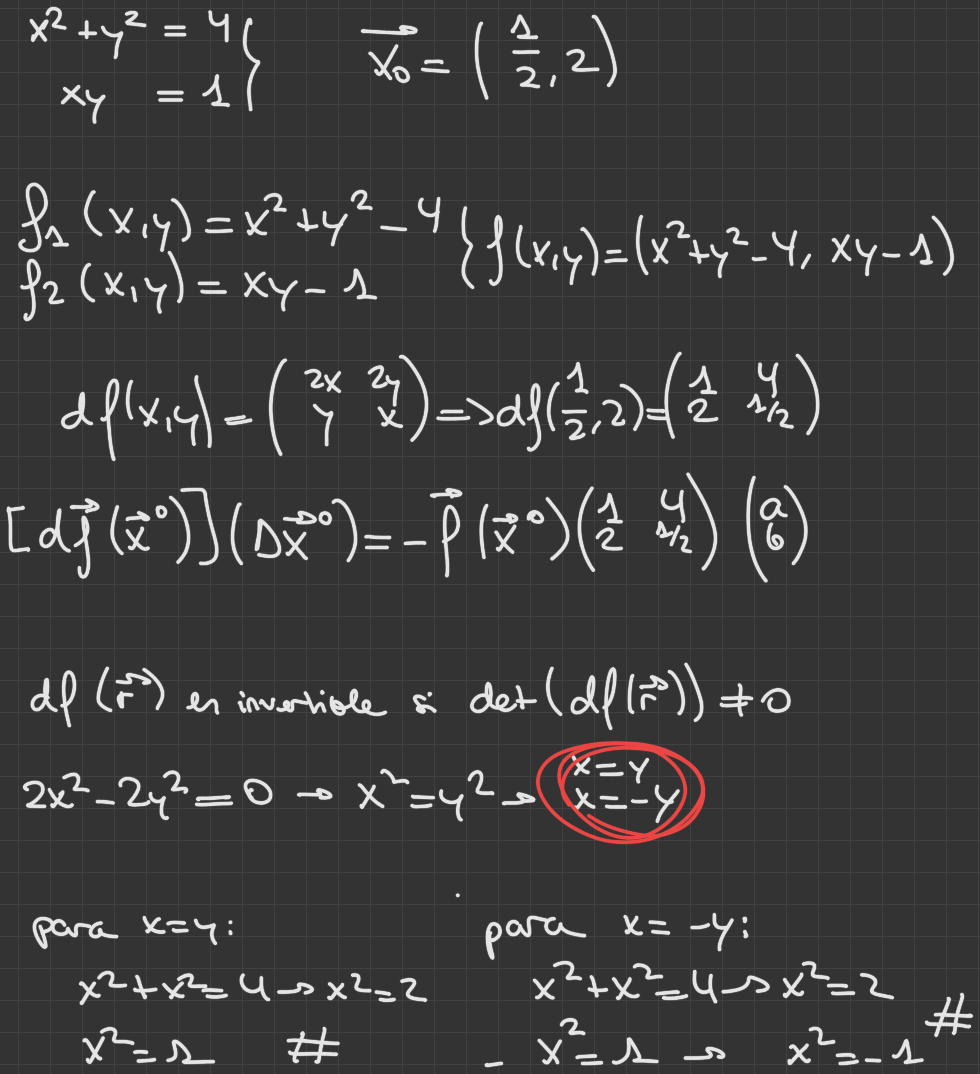 x² + y² = 4 } x₀⃗ = (1/2, 2)
xy = 1
f₁(x,y) = x² + y² - 4 } f(x,y) = (x² + y² - 4, xy - 1)
f₂(x,y) = xy - 1
df(x,y) = (2x 2y; y x) => df(1/2, 2) = (1 4; 2 1/2)
[df⃗(x⃗⁰)](Δx⃗⁰) = -f⃗(x⃗⁰) (1 4; 2 1/2) (a; b)
df(r⃗) es invertible si det(df(r⃗)) ≠ 0
2x² - 2y² = 0 → x² = y² → x = y
x = -y
para x = y:
x² + x² = 4 → x² = 2
x² = 1 #
para x = -y:
x² + x² = 4 → x² = 2
- x² = 1 → x² = -1 #